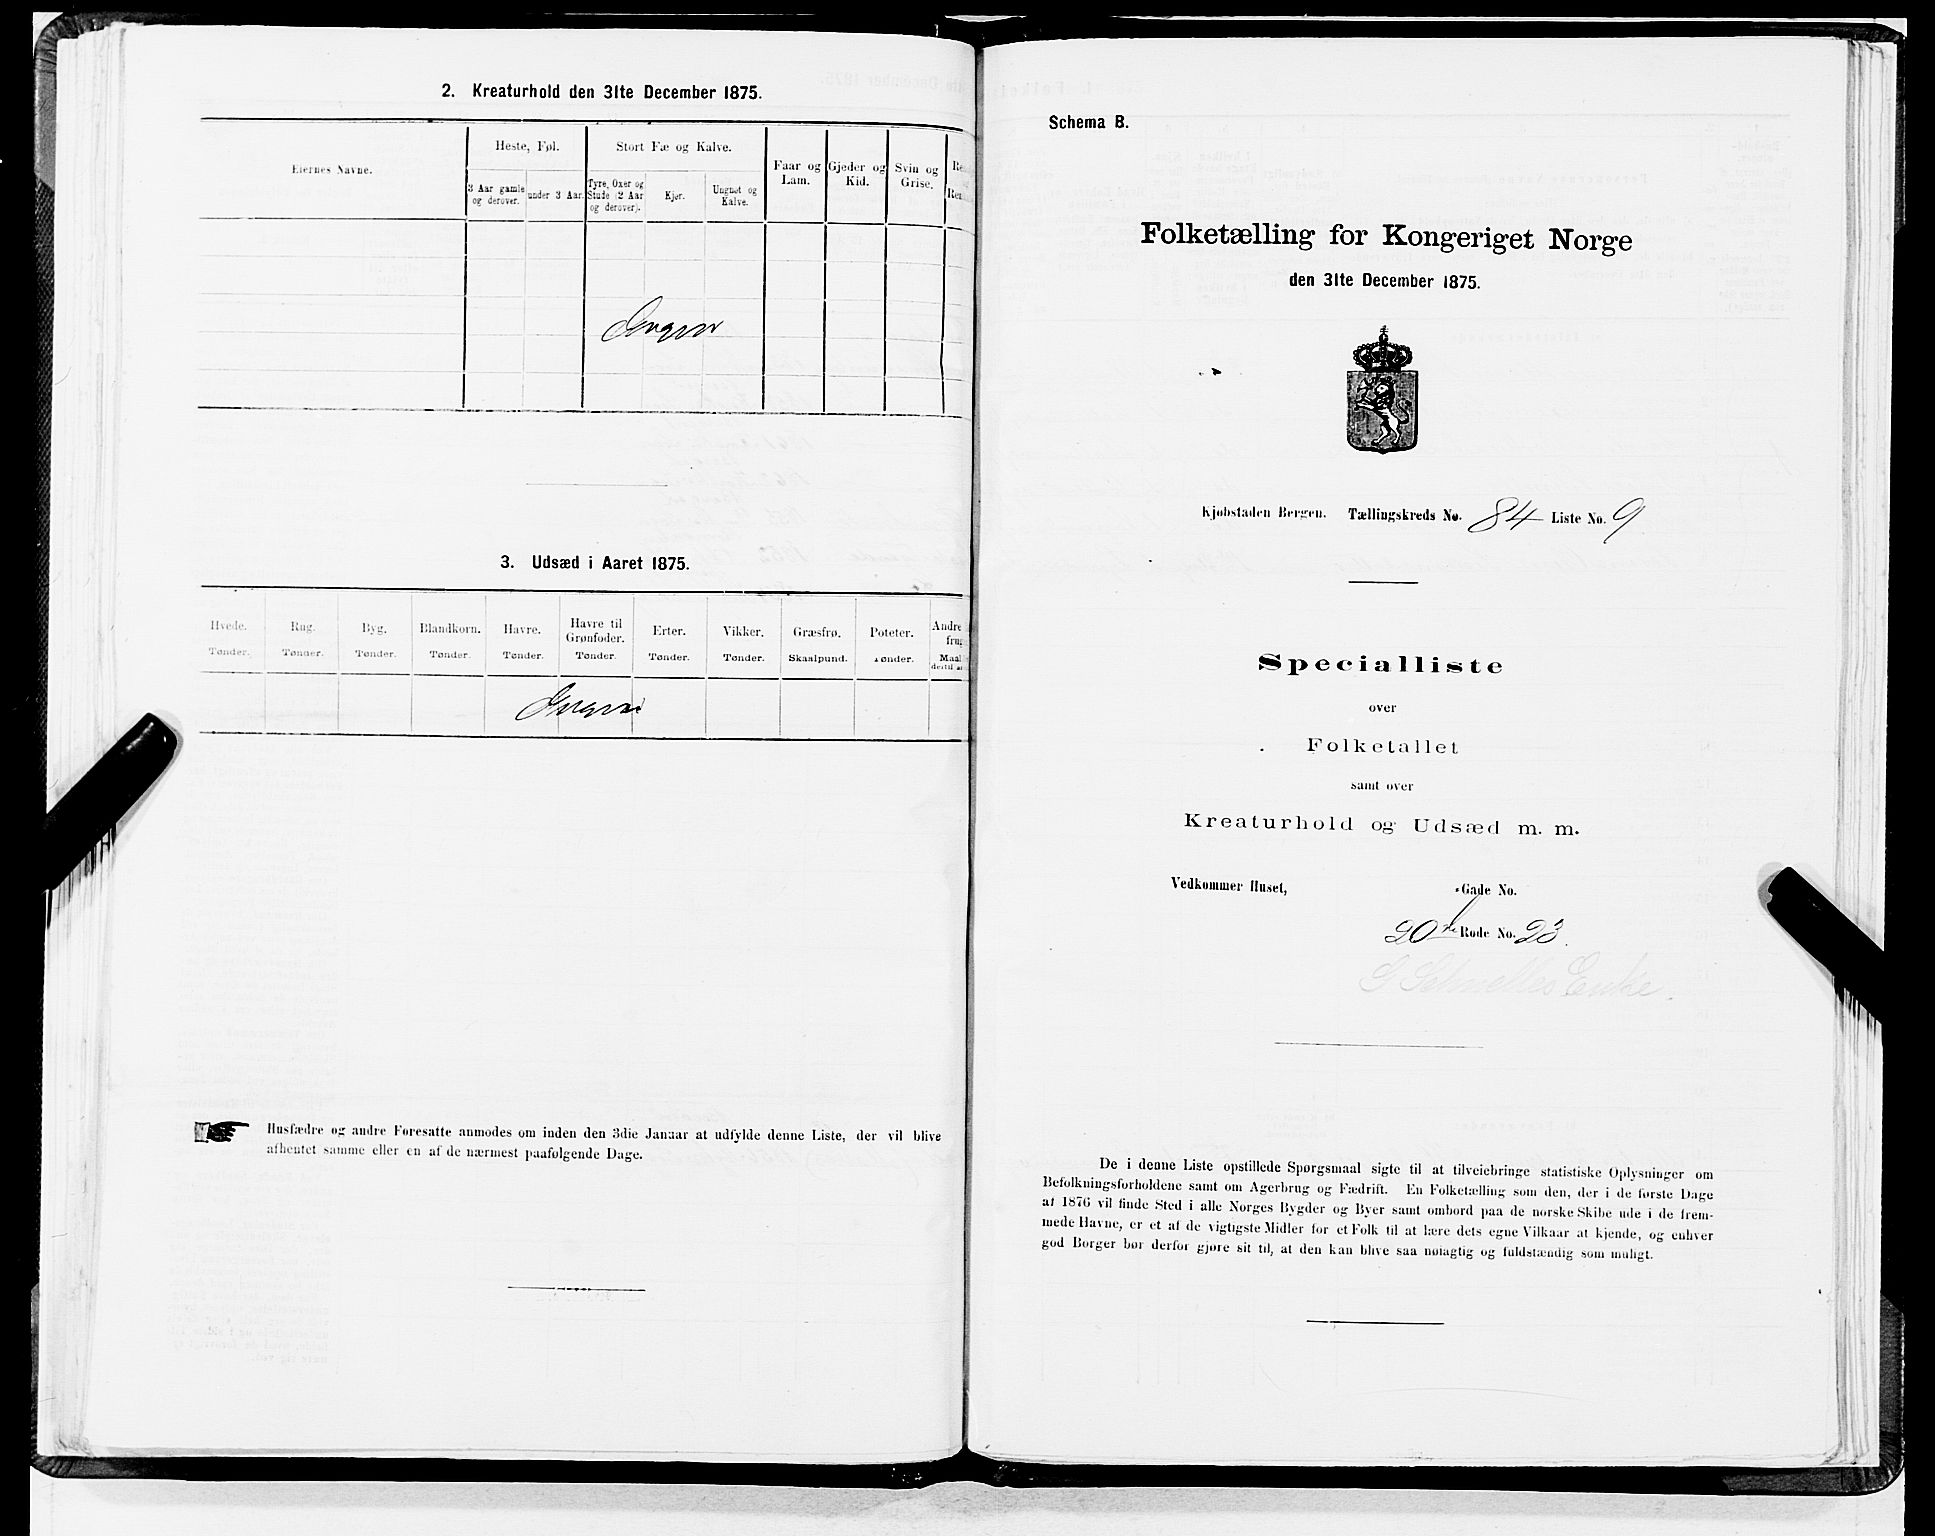 2. Kreaturhold den 31te December 1875.
Eiernes Navne.
Heste, Føl.
Stort Fæ og Kalve.
Faar og Lam.
Gjeder og Kid.
Svin og Grise.
3 Aar gamle og derover.
under 3 Aar.
Tyre, Oxer og Stude (2 Aar og derover).
Kjør.
Ungnøt og Kalve.
Ingen
3. Udsæd i Aaret 1875.
Hvede. Rug. Byg. Blandkorn. Havre. Havre til Grønfoder. Erter. Vikker. Græsfrø. Poteter. Andre
Tønder. Tønder. Tønder. Tønder. Tønder. Tønder. Tønder. Tønder. Skaalpund. Tønder. Maal
Ingen
Husfædre og andre Foresatte anmodes om inden den 3die Januar at udfylde denne Liste, der vil blive
afhentet samme eller en af de nærmest paafølgende Dage.
Schema B.
Folketælling for Kongeriget Norge
den 31te December 1875.
Kjøbstaden Bergen. Tællingskreds No. 84 Liste No. 9
Specialliste
over
Folketallet
samt over
Kreaturhold og Udsæd m. m.
Vedkommer Huset, -Gade No.
20de Rode No. 23.
G Schnelles Enke.
De i denne Liste opstillede Spørgsmaal sigte til at tilveiebringe statistiske Oplysninger om
Befolkningsforholdene samt om Agerbrug og Fædrift. En Folketælling som den, der i de første Dage
af 1876 vil finde Sted i alle Norges Bygder og Byer samt ombord paa de norske Skibe ude i de frem-
mede Havne, er et af de vigtigste Midler for et Folk til at lære dets egne Vilkaar at kjende, og enhver
god Borger bør derfor gjøre sit til, at den kan blive saa nøiagtig og fuldstændig som muligt.